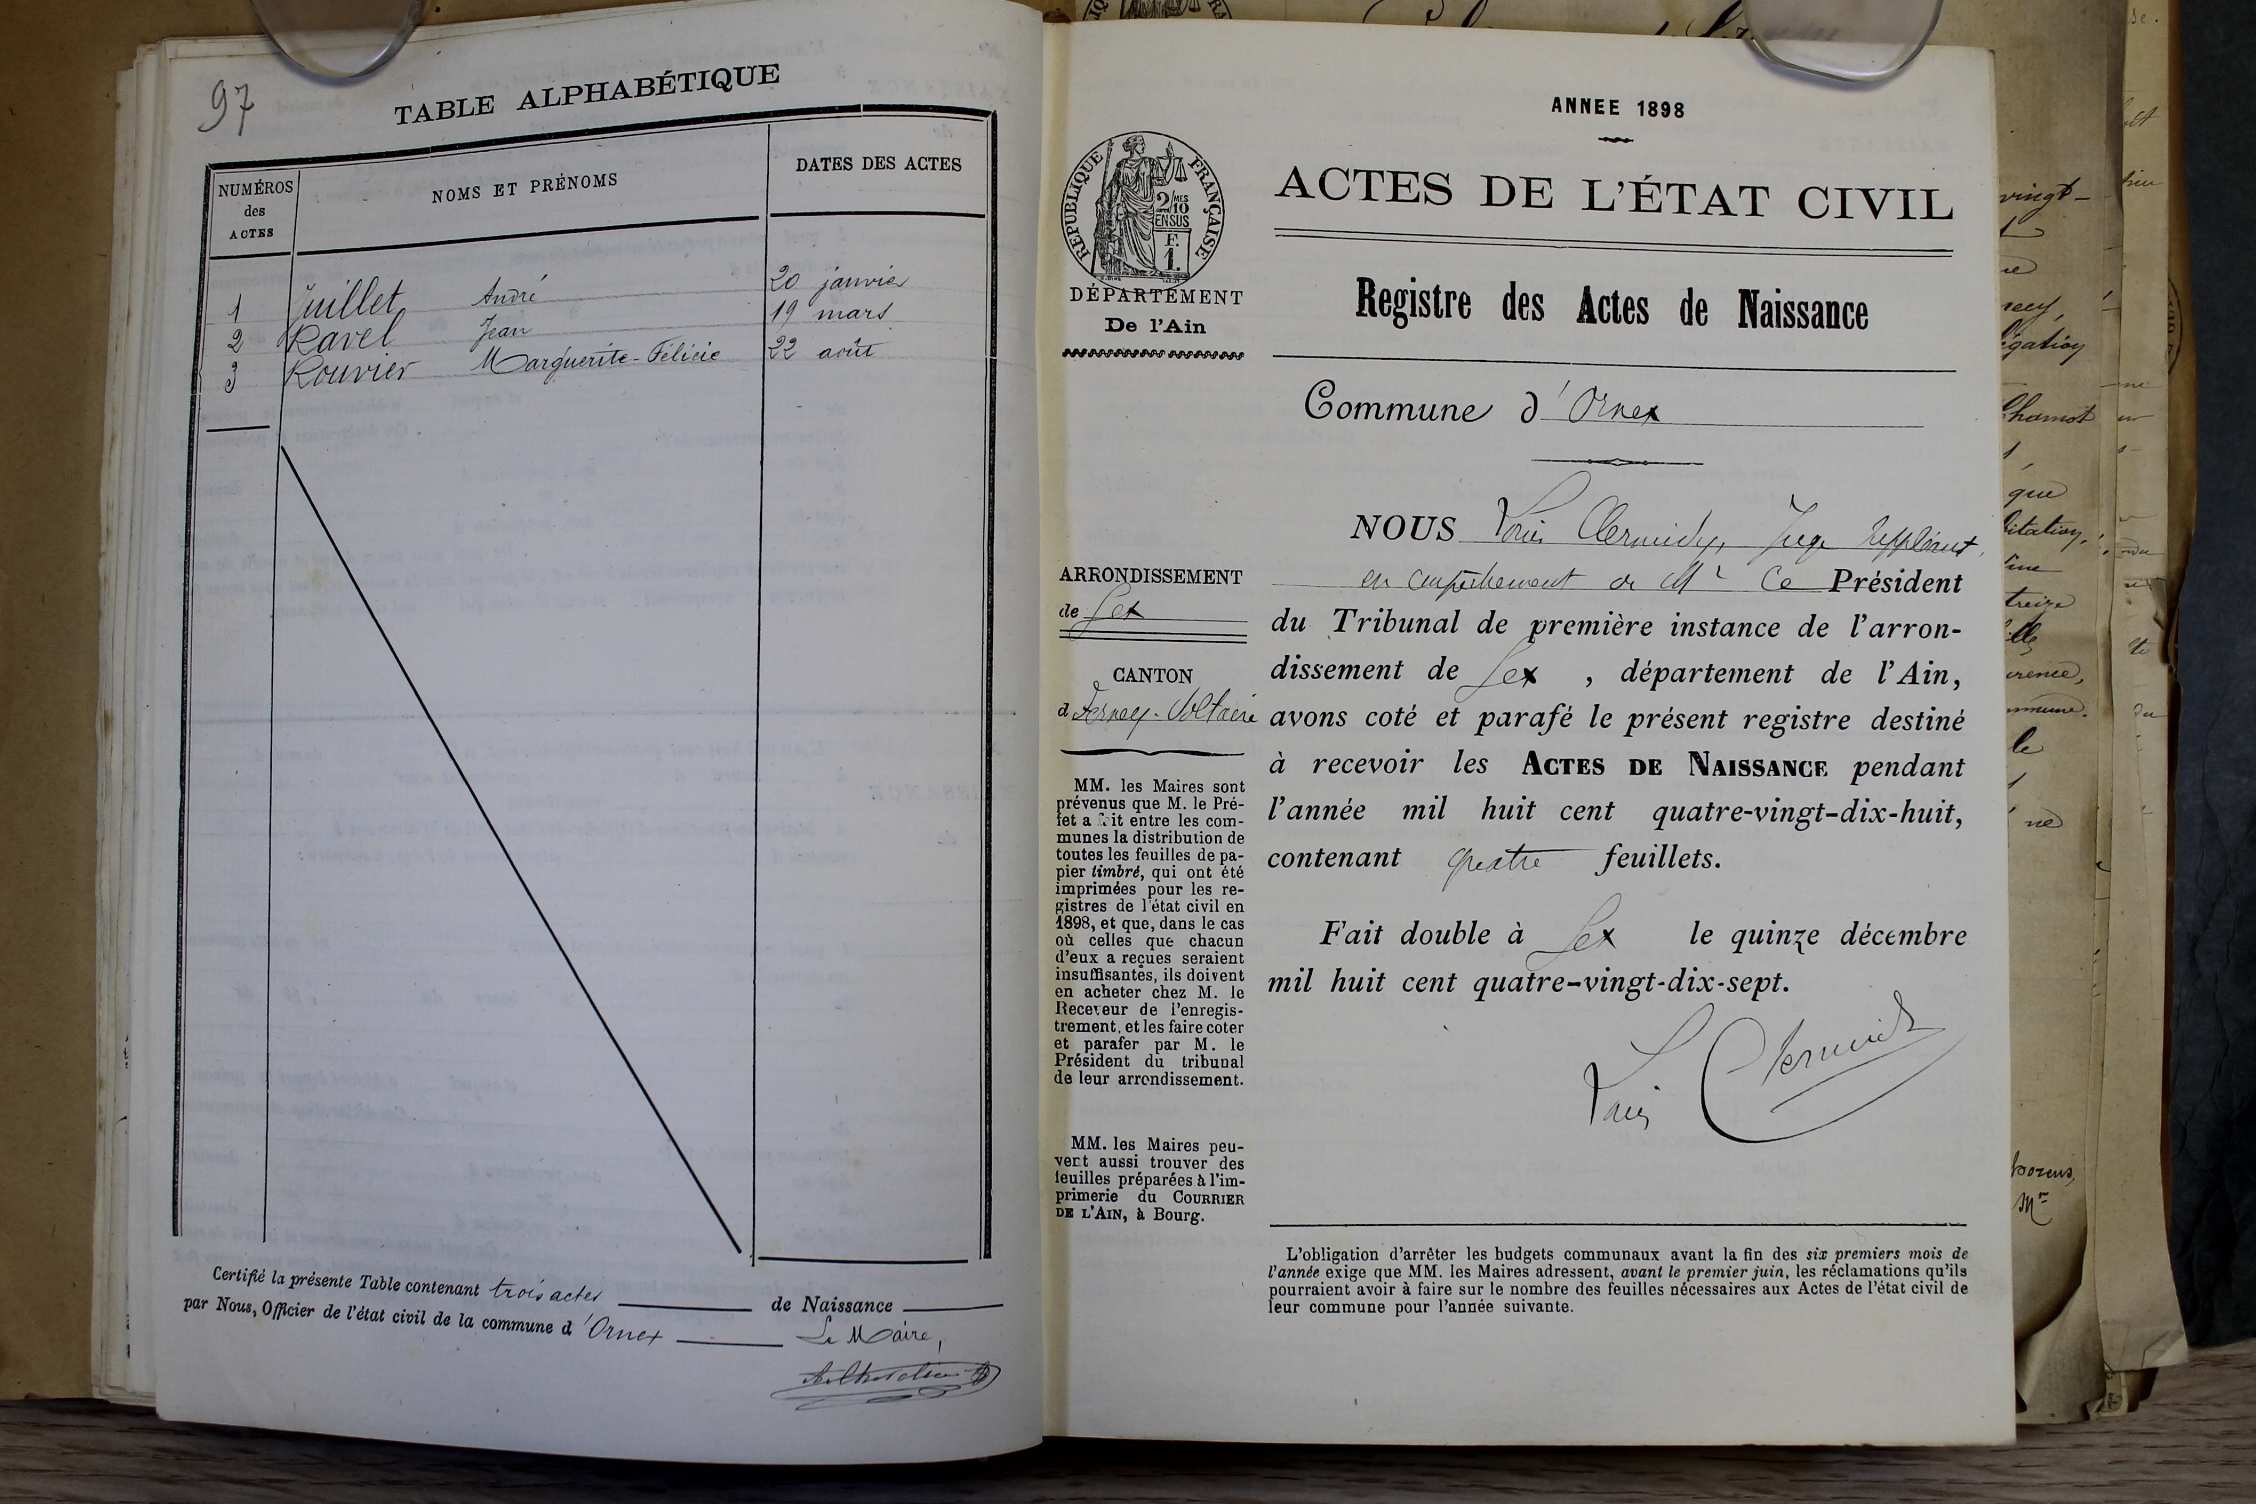 97
TABLE ALPHABÉTIQUE
NUMÉROS
des
ACTES
NOMS ET PRÉNOMS
DATES DES ACTES
1 Juillet André 20 janvier
2 Ravel Jean 19 mars
3 Rouvier Marguerite-Félicie 22 août
Certifié la présente Table contenant trois actes de Naissance
par Nous, Officier de l'état civil de la commune d'Ornex Le Maire,
ANNEE 1898
ACTES DE L'ÉTAT CIVIL
RÉPUBLIQUE FRANÇAISE
2/10 MES
EN SUS
F.
1.
DÉPARTEMENT
De l'Ain
Registre des Actes de Naissance
Commune d'Ornex
ARRONDISSEMENT
de Gex
CANTON
d Ferney-Voltaire
MM. les Maires sont
prévenus que M. le Pré-
fet a fait entre les com-
munes la distribution de
toutes les feuilles de pa-
pier timbré, qui ont été
imprimées pour les re-
gistres de l'état civil en
1898, et que, dans le cas
où celles que chacun
d'eux a reçues seraient
insuffisantes, ils doivent
en acheter chez M. le
Receveur de l'enregis-
trement, et les faire coter
et parafer par M. le
Président du tribunal
de leur arrondissement.
MM. les Maires peu-
vent aussi trouver des
feuilles préparées à l'im-
primerie du COURRIER
DE L'AIN, à Bourg.
NOUS Louis Juge suppléant,
en empêchement de Mr le Président
du Tribunal de première instance de l'arron-
dissement de Gex, département de l'Ain,
avons coté et parafé le présent registre destiné
à recevoir les ACTES DE NAISSANCE pendant
l'année mil huit cent quatre-vingt-dix-huit,
contenant quatre feuillets.
Fait double à Gex le quinze décembre
mil huit cent quatre-vingt-dix-sept.
Louis
L'obligation d'arrêter les budgets communaux avant la fin des six premiers mois de
l'année exige que MM. les Maires adressent, avant le premier juin, les réclamations qu'ils
pourraient avoir à faire sur le nombre des feuilles nécessaires aux Actes de l'état civil de
leur commune pour l'année suivante.